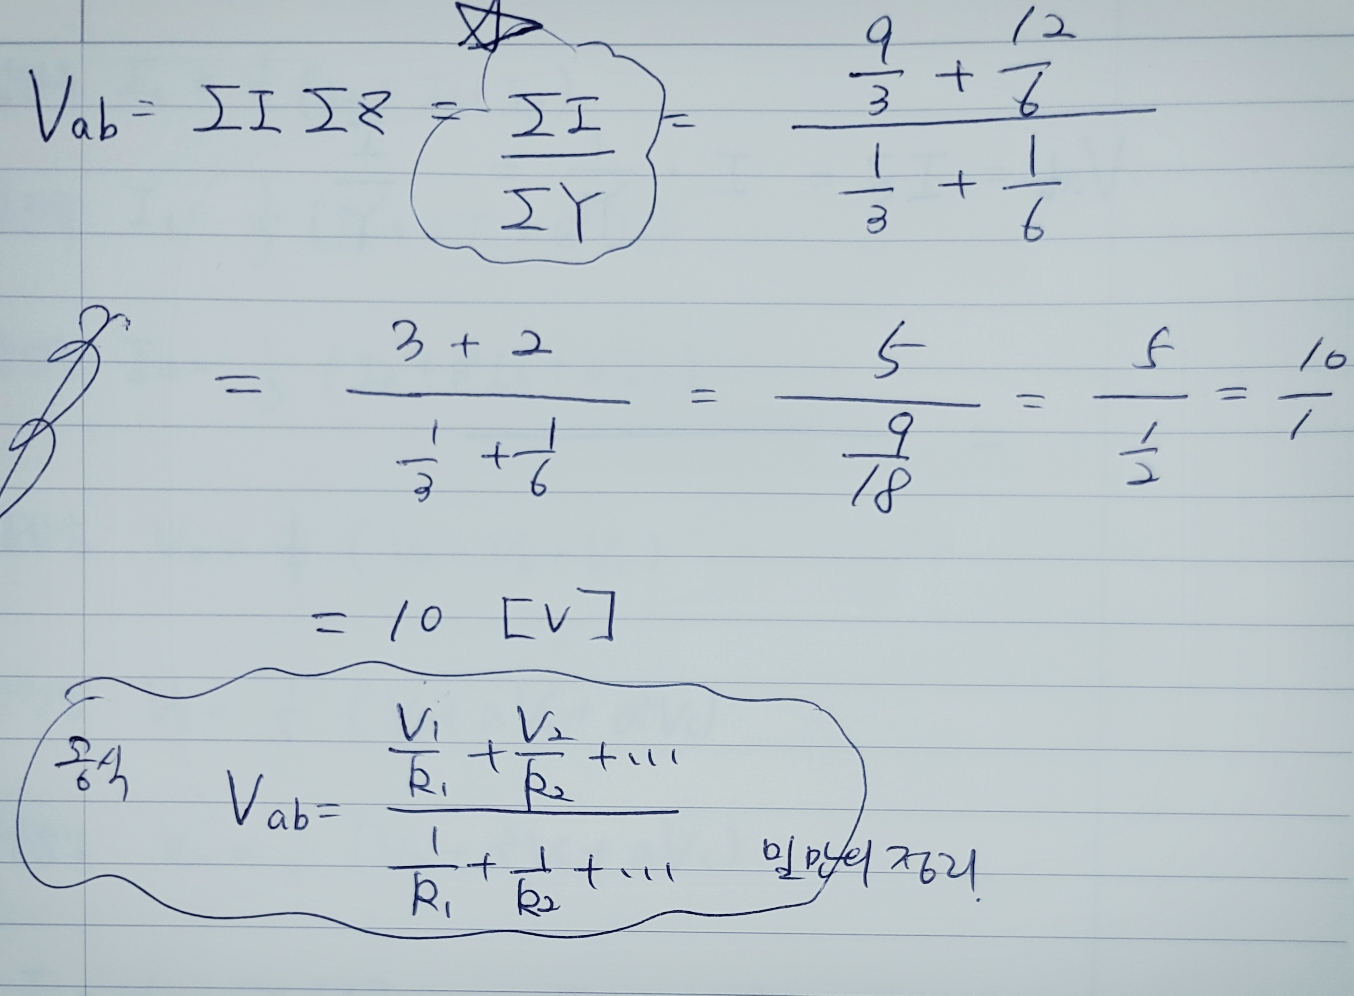 Vab = ΣI ΣZ = ΣI/ΣY = (9/3 + 12/6)/(1/3 + 1/6)
= (3 + 2)/(1/3 + 1/6) = 5/(9/18) = 5/(1/2) = 10/1
= 10 [V]
공식 Vab = (V₁/R₁ + V₂/R₂ + ...)/(1/R₁ + 1/R₂ + ...) 밀만의 정리!